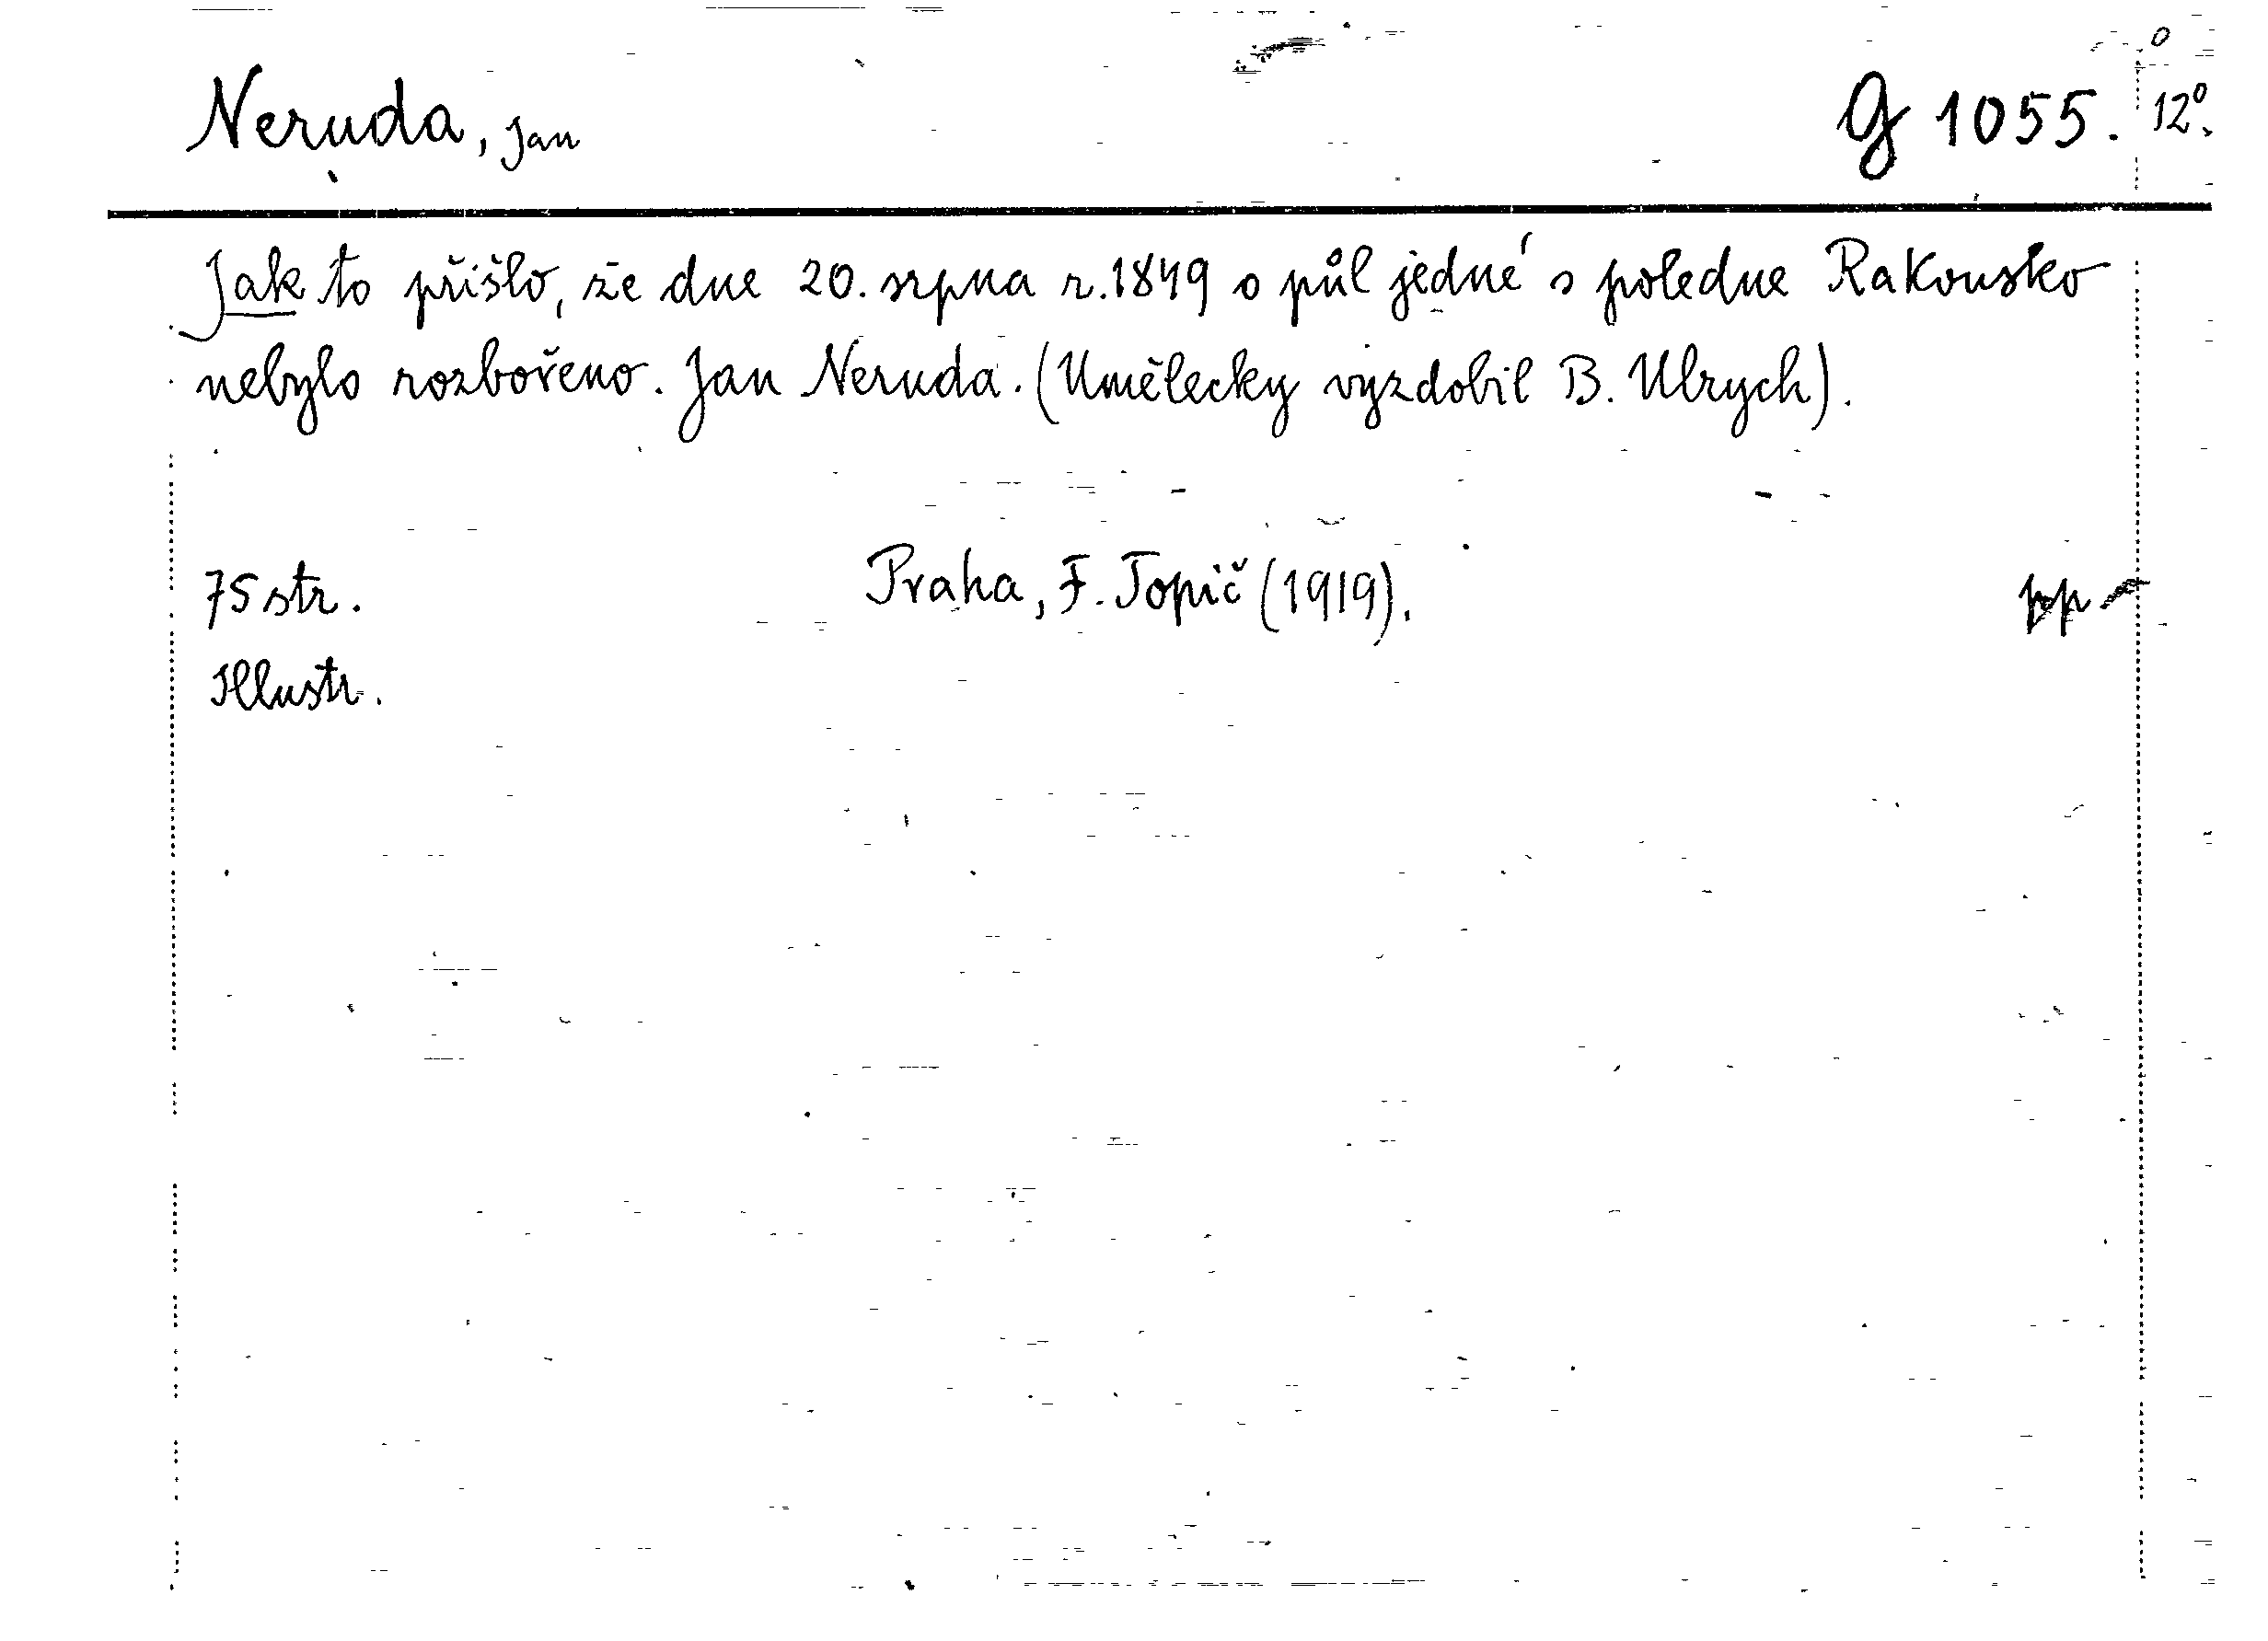 Neruda, Jan G 1055. 12º.
Jak to přišlo, že dne 20. srpna r. 1849 o půl jedné s poledne Rakousko
nebylo rozbořeno. Jan Neruda. (Umělecky vyzdobil B. Ulrych).
75 str. Praha, F. Topič (1919). pp
Illustr.